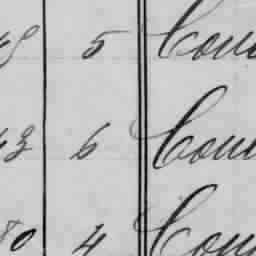 5 Cou
43 6 Cou
80 4 Cou